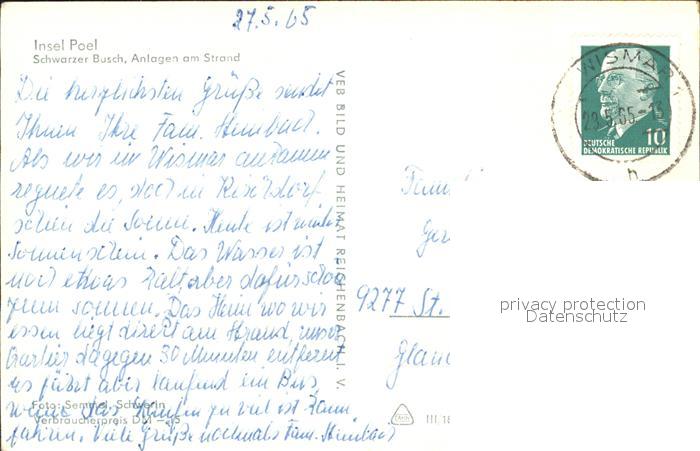 27.5.65
Insel Poel
Schwarzer Busch, Anlagen am Strand
Die herzlichsten Grüße sendet
Ihnen Ihre Fam. Heimbach.
Als wir in Wismar ankamen
regnete es, doch in
schien die Sonne. Heute ist
Sonnenschein. Das Wasser ist
noch etwas kalt aber dafür schön
zum sonnen. Das Heim wo wir
essen liegt direkt am Strand, unser
Quartier dagegen 30 Minuten entfernt
es fährt aber laufend ein Bus
wenn das Laufen zu viel ist kann
fahren. Viele Grüße nochmals Fam. Heimbach
Foto: Semmel, Schwerin
Verbraucherpreis DM
VEB BILD UND HEIMAT REICHENBACH I. V.
III 18
WISMAR 1
28.5.65-13
h
10
DEUTSCHE
DEMOKRATISCHE REPUBLIK
Fami
Ger
9277 St.
Glau
privacy protection
Datenschutz